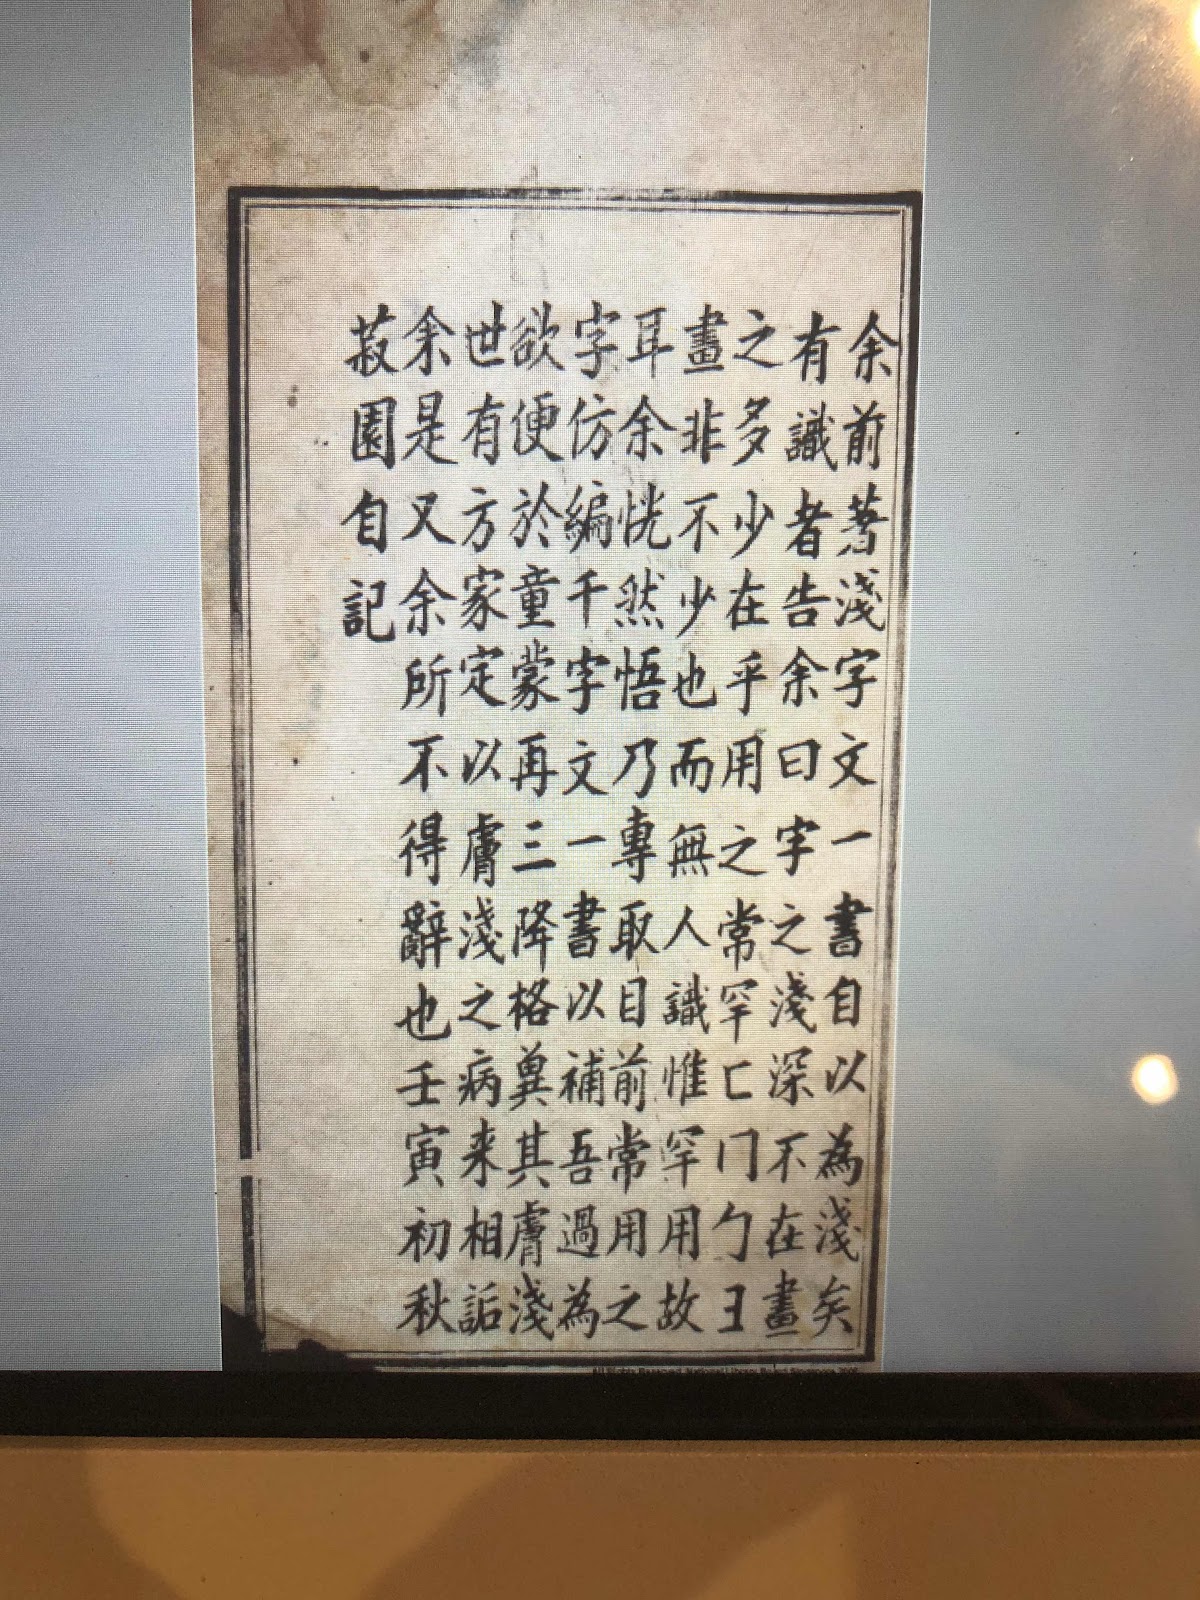 余前著淺字文一書自以為淺矣
有識者告余曰字之淺深不在畫
之多少在乎用之常罕匚冂勹彐
畫非不少也而無人識惟罕用故
耳余恍然悟乃專取目前常用之
字仿編千字文一書以補吾過為
欲便於童蒙再三降格冀其膚淺
世有方家定以膚淺之病来相詬
余是又余所不得辭也壬寅初秋
菽園自記